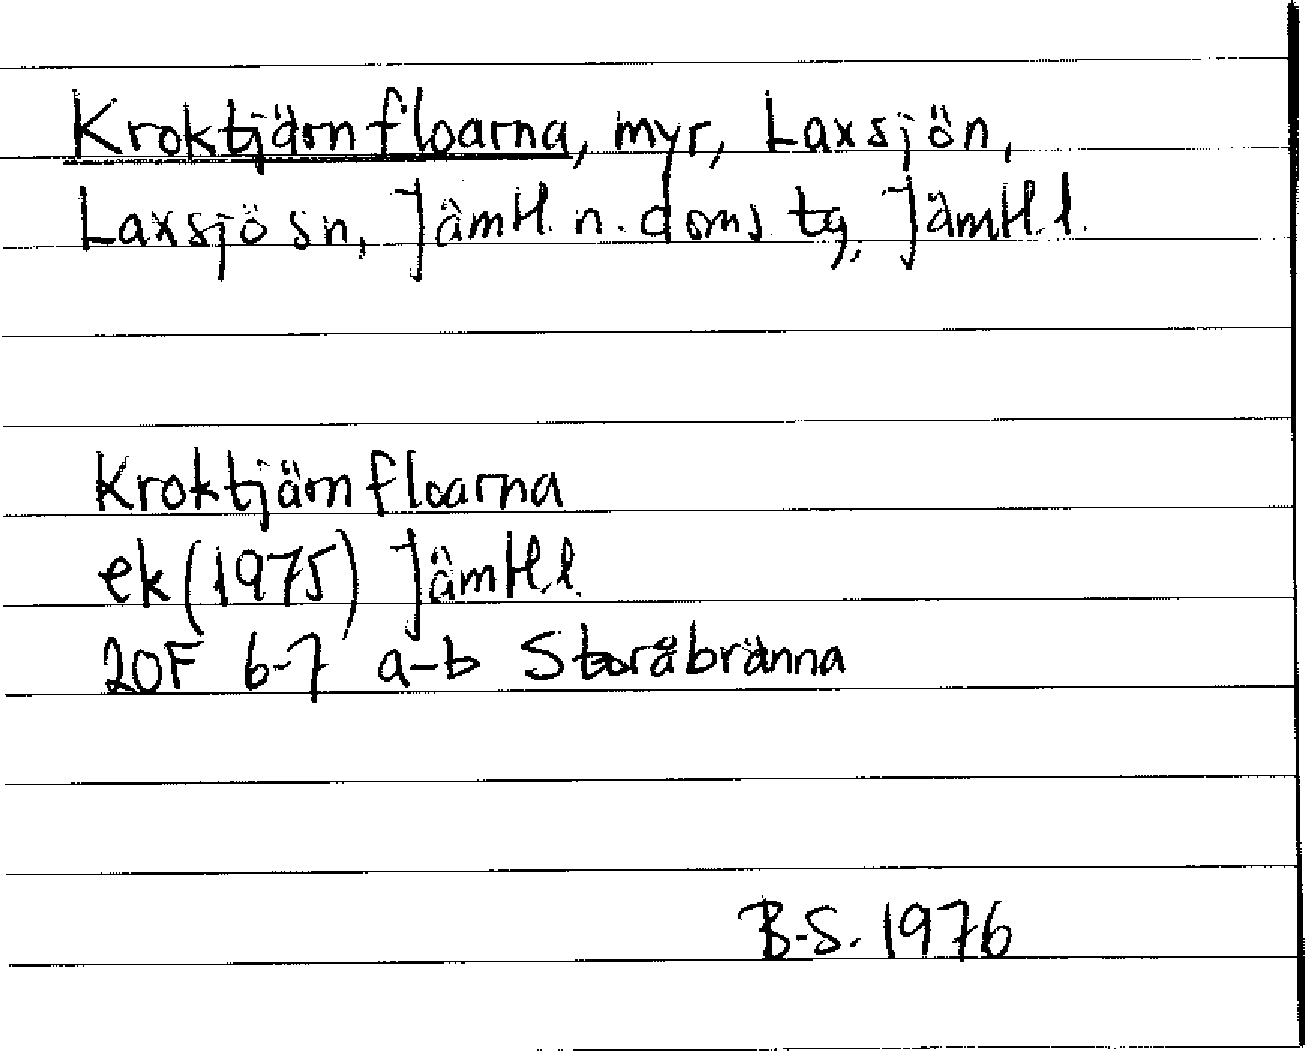 Kroktjärnfloarna, myr, Laxsjön,
Laxsjö sn, Jämtl. n. doms tg, Jämtl. l.
Kroktjärnfloarna
ek (1975) Jämtl. l.
20F 6-7 a-b Storåbränna
B-S. 1976